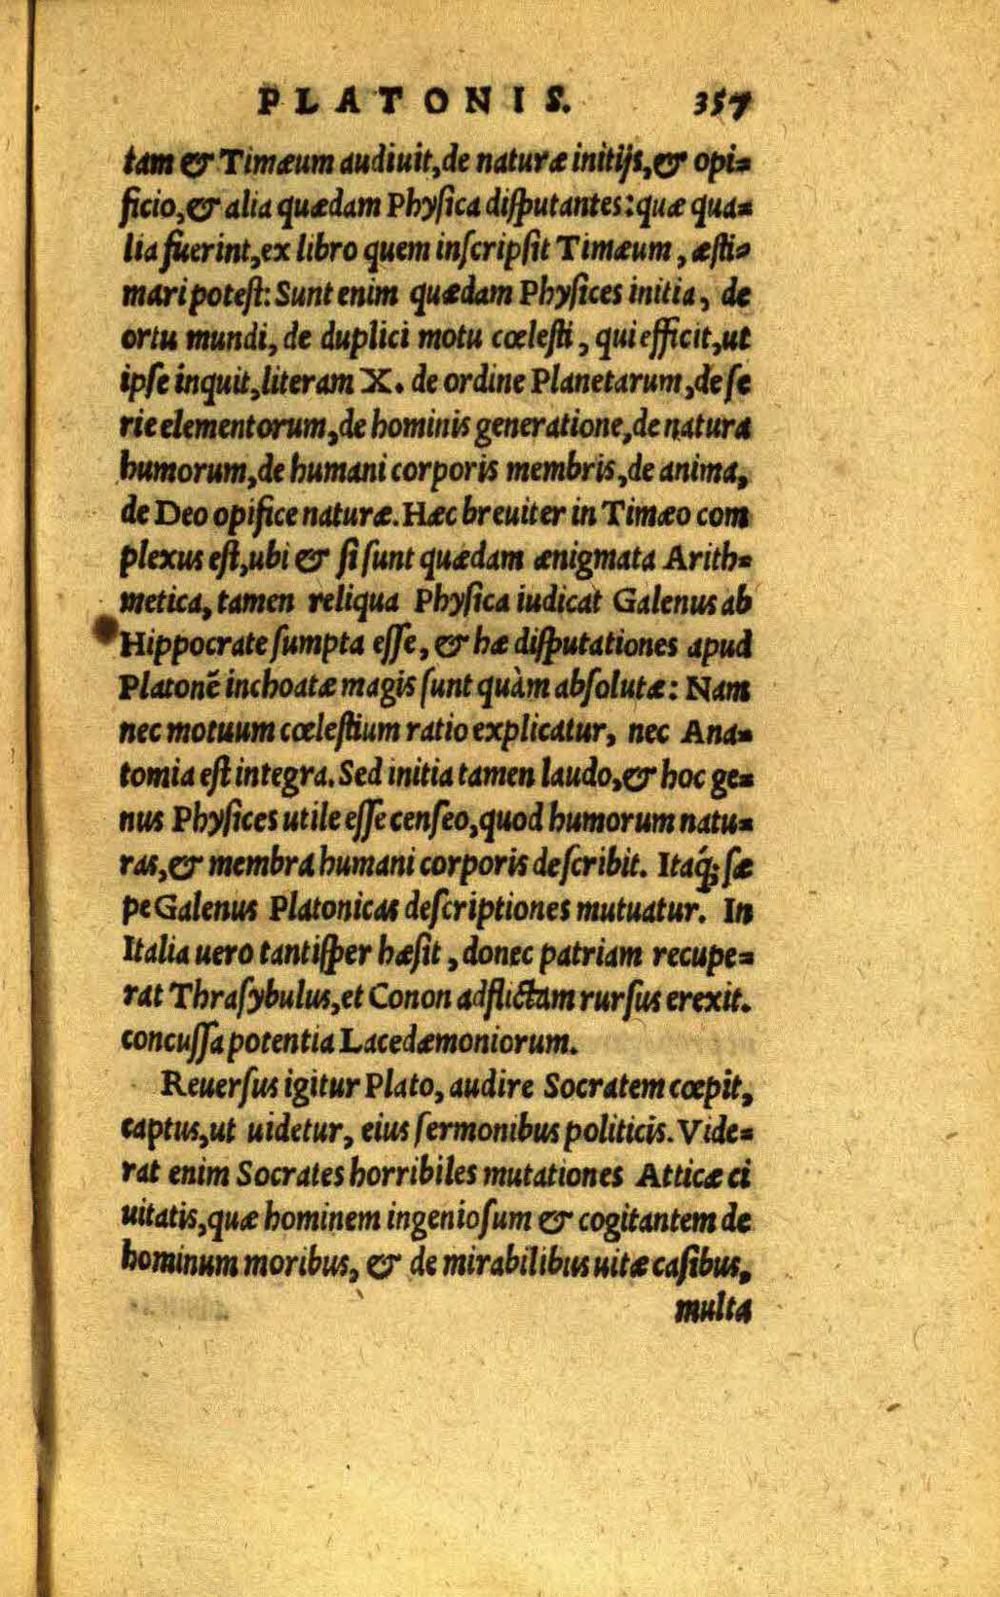 PLATONIS. 357
tam & Timæum audiuit, de naturæ initijs, & opi=
ficio, & alia quædam Physica disputantes: quæ qua=
lia fuerint, ex libro quem inscripsit Timæum, æsti=
mari potest: Sunt enim quædam Physices initia, de
ortu mundi, de duplici motu cœlesti, qui efficit, ut
ipse inquit, literam X. de ordine Planetarum, de se
rie elementorum, de hominis generatione, de natura
humorum, de humani corporis membris, de anima,
de Deo opifice naturæ. Hæc breuiter in Timæo com
plexus est, ubi & si sunt quædam ænigmata Arith=
metica, tamen reliqua Physica iudicat Galenus ab
Hippocrate sumpta esse, & hæ disputationes apud
Platonē inchoatæ magis sunt quàm absolutæ: Nam
nec motuum cœlestium ratio explicatur, nec Ana=
tomia est integra. Sed initia tamen laudo, & hoc ge=
nus Physices utile esse censeo, quod humorum natu=
ras, & membra humani corporis describit. Itaq́; sæ
pe Galenus Platonicas descriptiones mutuatur. In
Italia uero tantisper hæsit, donec patriam recupe=
rat Thrasybulus, et Conon adflictam rursus erexit.
concussa potentia Lacedæmoniorum.
Reuersus igitur Plato, audire Socratem cœpit,
captus, ut uidetur, eius sermonibus politicis. Vide=
rat enim Socrates horribiles mutationes Atticæ ci
uitatis, quæ hominem ingeniosum & cogitantem de
hominum moribus, & de mirabilibus uitæ casibus,
multa